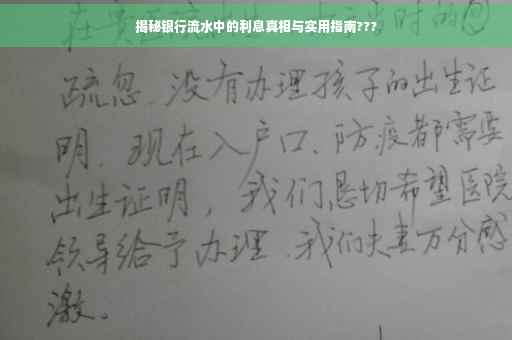 揭秘银行流水中的利息真相与实用指南???
在贵 时的
疏忽、没有办理孩子的出生证
明、现在入户口、防疫都需要
出生证明，我们恳切希望医院
领导给予办理、我们夫妻万分感
激。